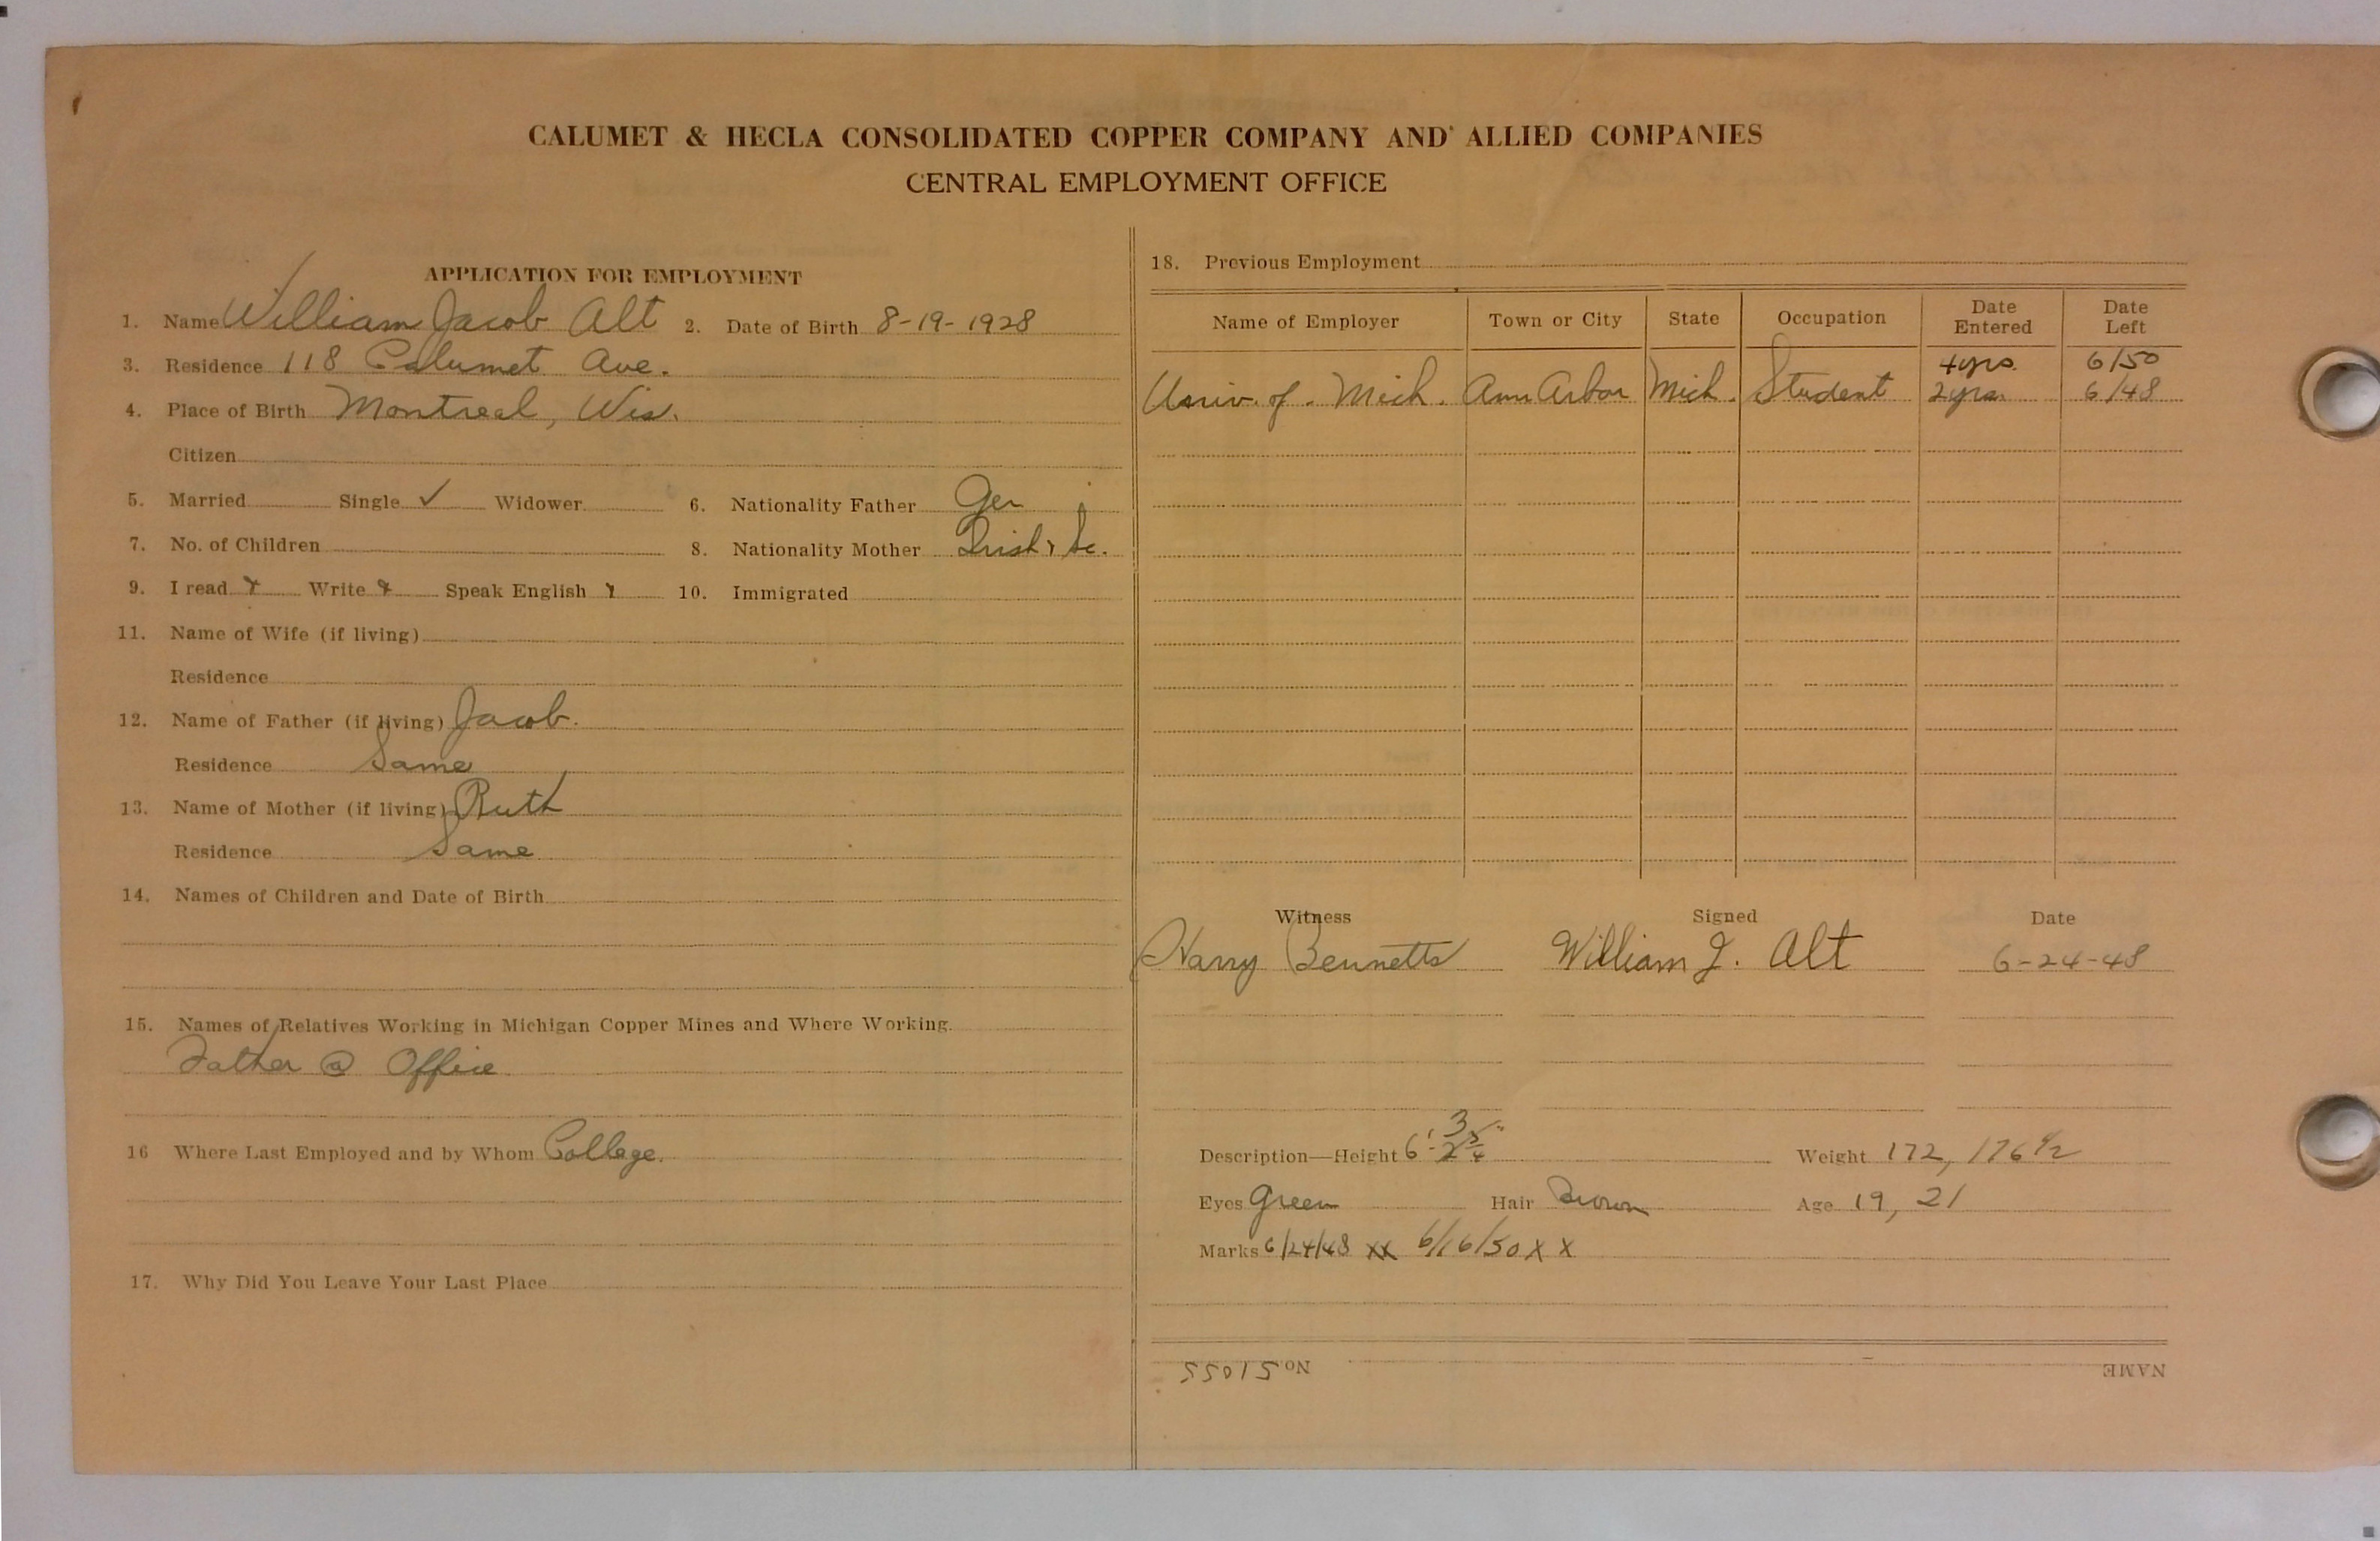 CALUMET & HECLA CONSOLIDATED COPPER COMPANY AND ALLIED COMPANIES
CENTRAL EMPLOYMENT OFFICE
APPLICATION FOR EMPLOYMENT
1. Name William Jacob Alt 2. Date of Birth 8-19-1928
3. Residence 118 Calumet Ave.
4. Place of Birth Montreal, Wis.
Citizen
5. Married Single ✓ Widower 6. Nationality Father Ger
7. No. of Children 8. Nationality Mother Irish & Sc.
9. I read Write Speak English 10. Immigrated
11. Name of Wife (if living)
Residence
12. Name of Father (if living) Jacob.
Residence Same
13. Name of Mother (if living) Ruth
Residence Same
14. Names of Children and Date of Birth
15. Names of Relatives Working in Michigan Copper Mines and Where Working.
Father @ Office
16 Where Last Employed and by Whom College.
17. Why Did You Leave Your Last Place
18. Previous Employment
Name of Employer Town or City State Occupation Date Entered Date Left
4yrs. 6/50
Univ. of. Mich. Ann Arbor Mich. Student 2yrs. 6/48
Witness Signed Date
Harry Bennetts William J. Alt 6-24-48
Description—Height 6'- Weight 172, 176 1/2
Eyes Green Hair Brown Age 19, 21
Marks 6/24/48 xx 6/16/50 X X
NAME No 51055